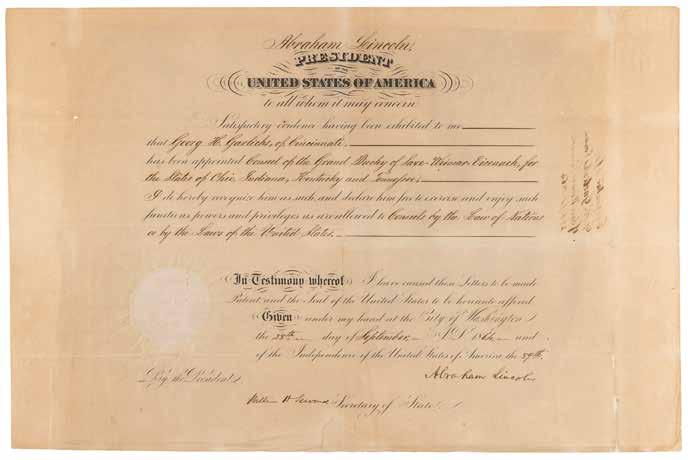 Abraham Lincoln,
PRESIDENT
OF THE
UNITED STATES OF AMERICA
to all whom it may concern
Satisfactory evidence having been exhibited to me
that Georg H. Garlichs, of Cincinnati,
has been appointed Consul of the Grand Duchy of Saxe-Weimar Eisenach, for
the States of Ohio, Indiana, Kentucky and Tennessee,
I do hereby recognize him as such, and declare him free to exercise and enjoy such
functions, powers and privileges as are allowed to Consuls by the Law of Nations
or by the Laws of the United States.
In Testimony whereof I have caused these Letters to be made
Patent and the Seal of the United States to be hereunto affixed
Given under my hand at the City of Washington
the 28th day of September, A.D. 1864 and
of the Independence of the United States of America, the 89th.
Abraham Lincoln
By the President
William H Seward Secretary of State